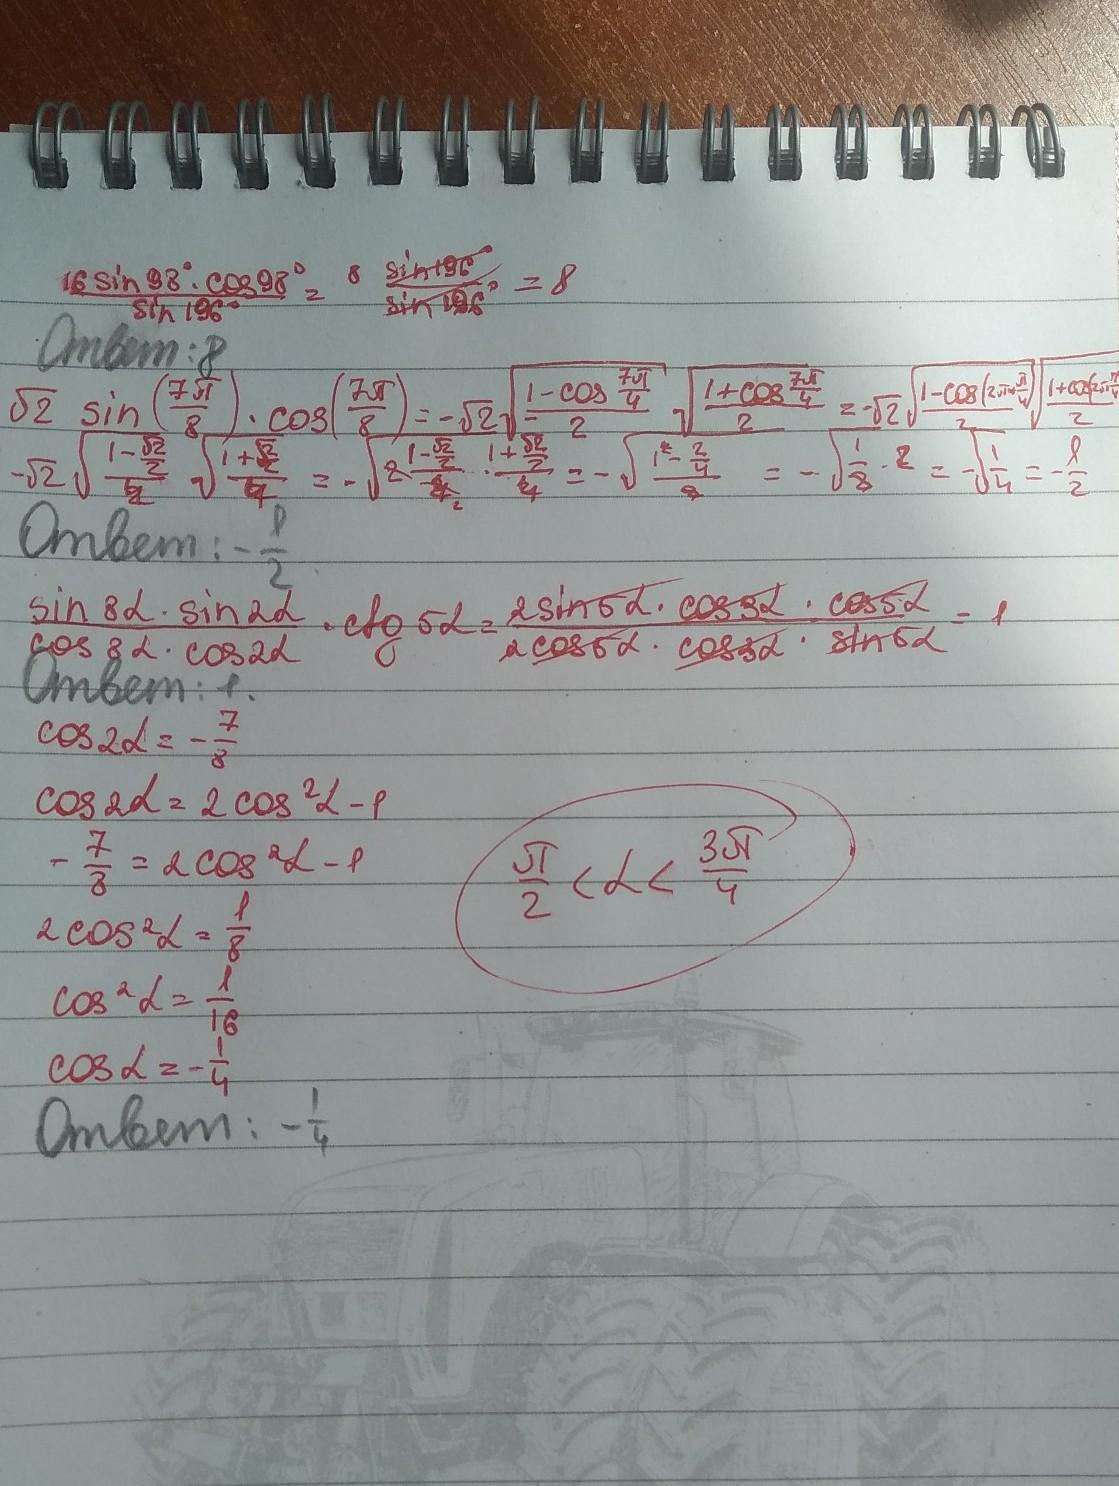 16 sin 98° · cos 98° / sin 196° = 8 sin 196° / sin 196° = 8
Ответ: 8
√2 sin(7π/8) · cos(7π/8) = -√2 √((1 - cos 7π/4)/2) √((1 + cos 7π/4)/2) = -√2 √((1 - cos(2π+π/4))/2) √((1 + cos(2π+π/4))/2)
-√2 √((1 - √2/2)/2) √((1 + √2/2)/2) = -√(2 (1 - √2/2)/2 · (1 + √2/2)/2) = -√((1² - 2/4)/2) = -√(1/8 · 2) = -√(1/4) = -1/2
Ответ: -1/2
sin 8α · sin 2α / cos 8α · cos 2α · ctg 5α = 2 sin 5α · cos 3α · cos 5α / 2 cos 5α · cos 3α · sin 5α = 1
Ответ: 1.
cos 2α = -7/8
cos 2α = 2 cos²α - 1
-7/8 = 2 cos²α - 1
π/2 < α < 3π/4
2 cos²α = 1/8
cos²α = 1/16
cos α = -1/4
Ответ: -1/4